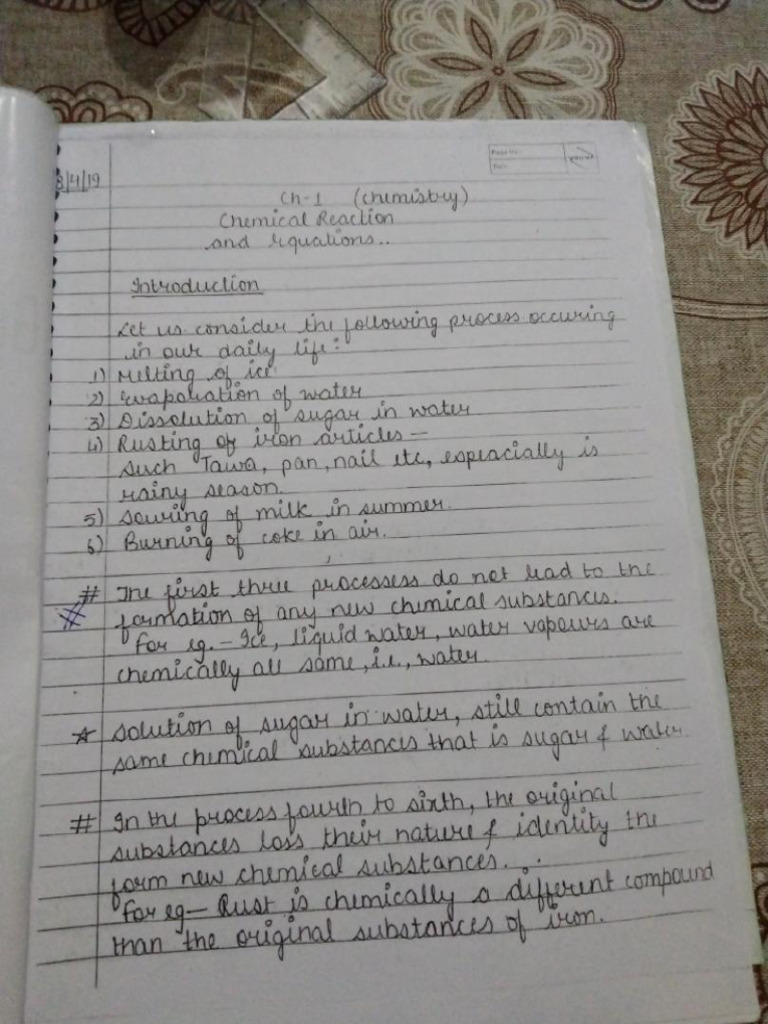 3/4/19
Page No.
Date
Ch-1 (Chemistry)
Chemical Reaction
and Equations..
Introduction
Let us consider the following process occuring
in our daily life:
1) Melting of ice
2) Evaporation of water
3) Dissolution of sugar in water
4) Rusting of iron articles —
such Tawa, pan, nail etc, espeacially is
rainy season.
5) Souring of milk in summer.
6) Burning of coke in air.
# The first three processess do not lead to the
# formation of any new chemical substances.
For eg. - Ice, liquid water, water vapours are
chemically all same, i.e., water.
☆ Solution of sugar in water, still contain the
same chemical substances that is sugar & water
# In the process fourth to sixth, the original
substances loss their nature & identity the
form new chemical substances...
For eg — Rust is chemically a different compound
than the original substances of iron.